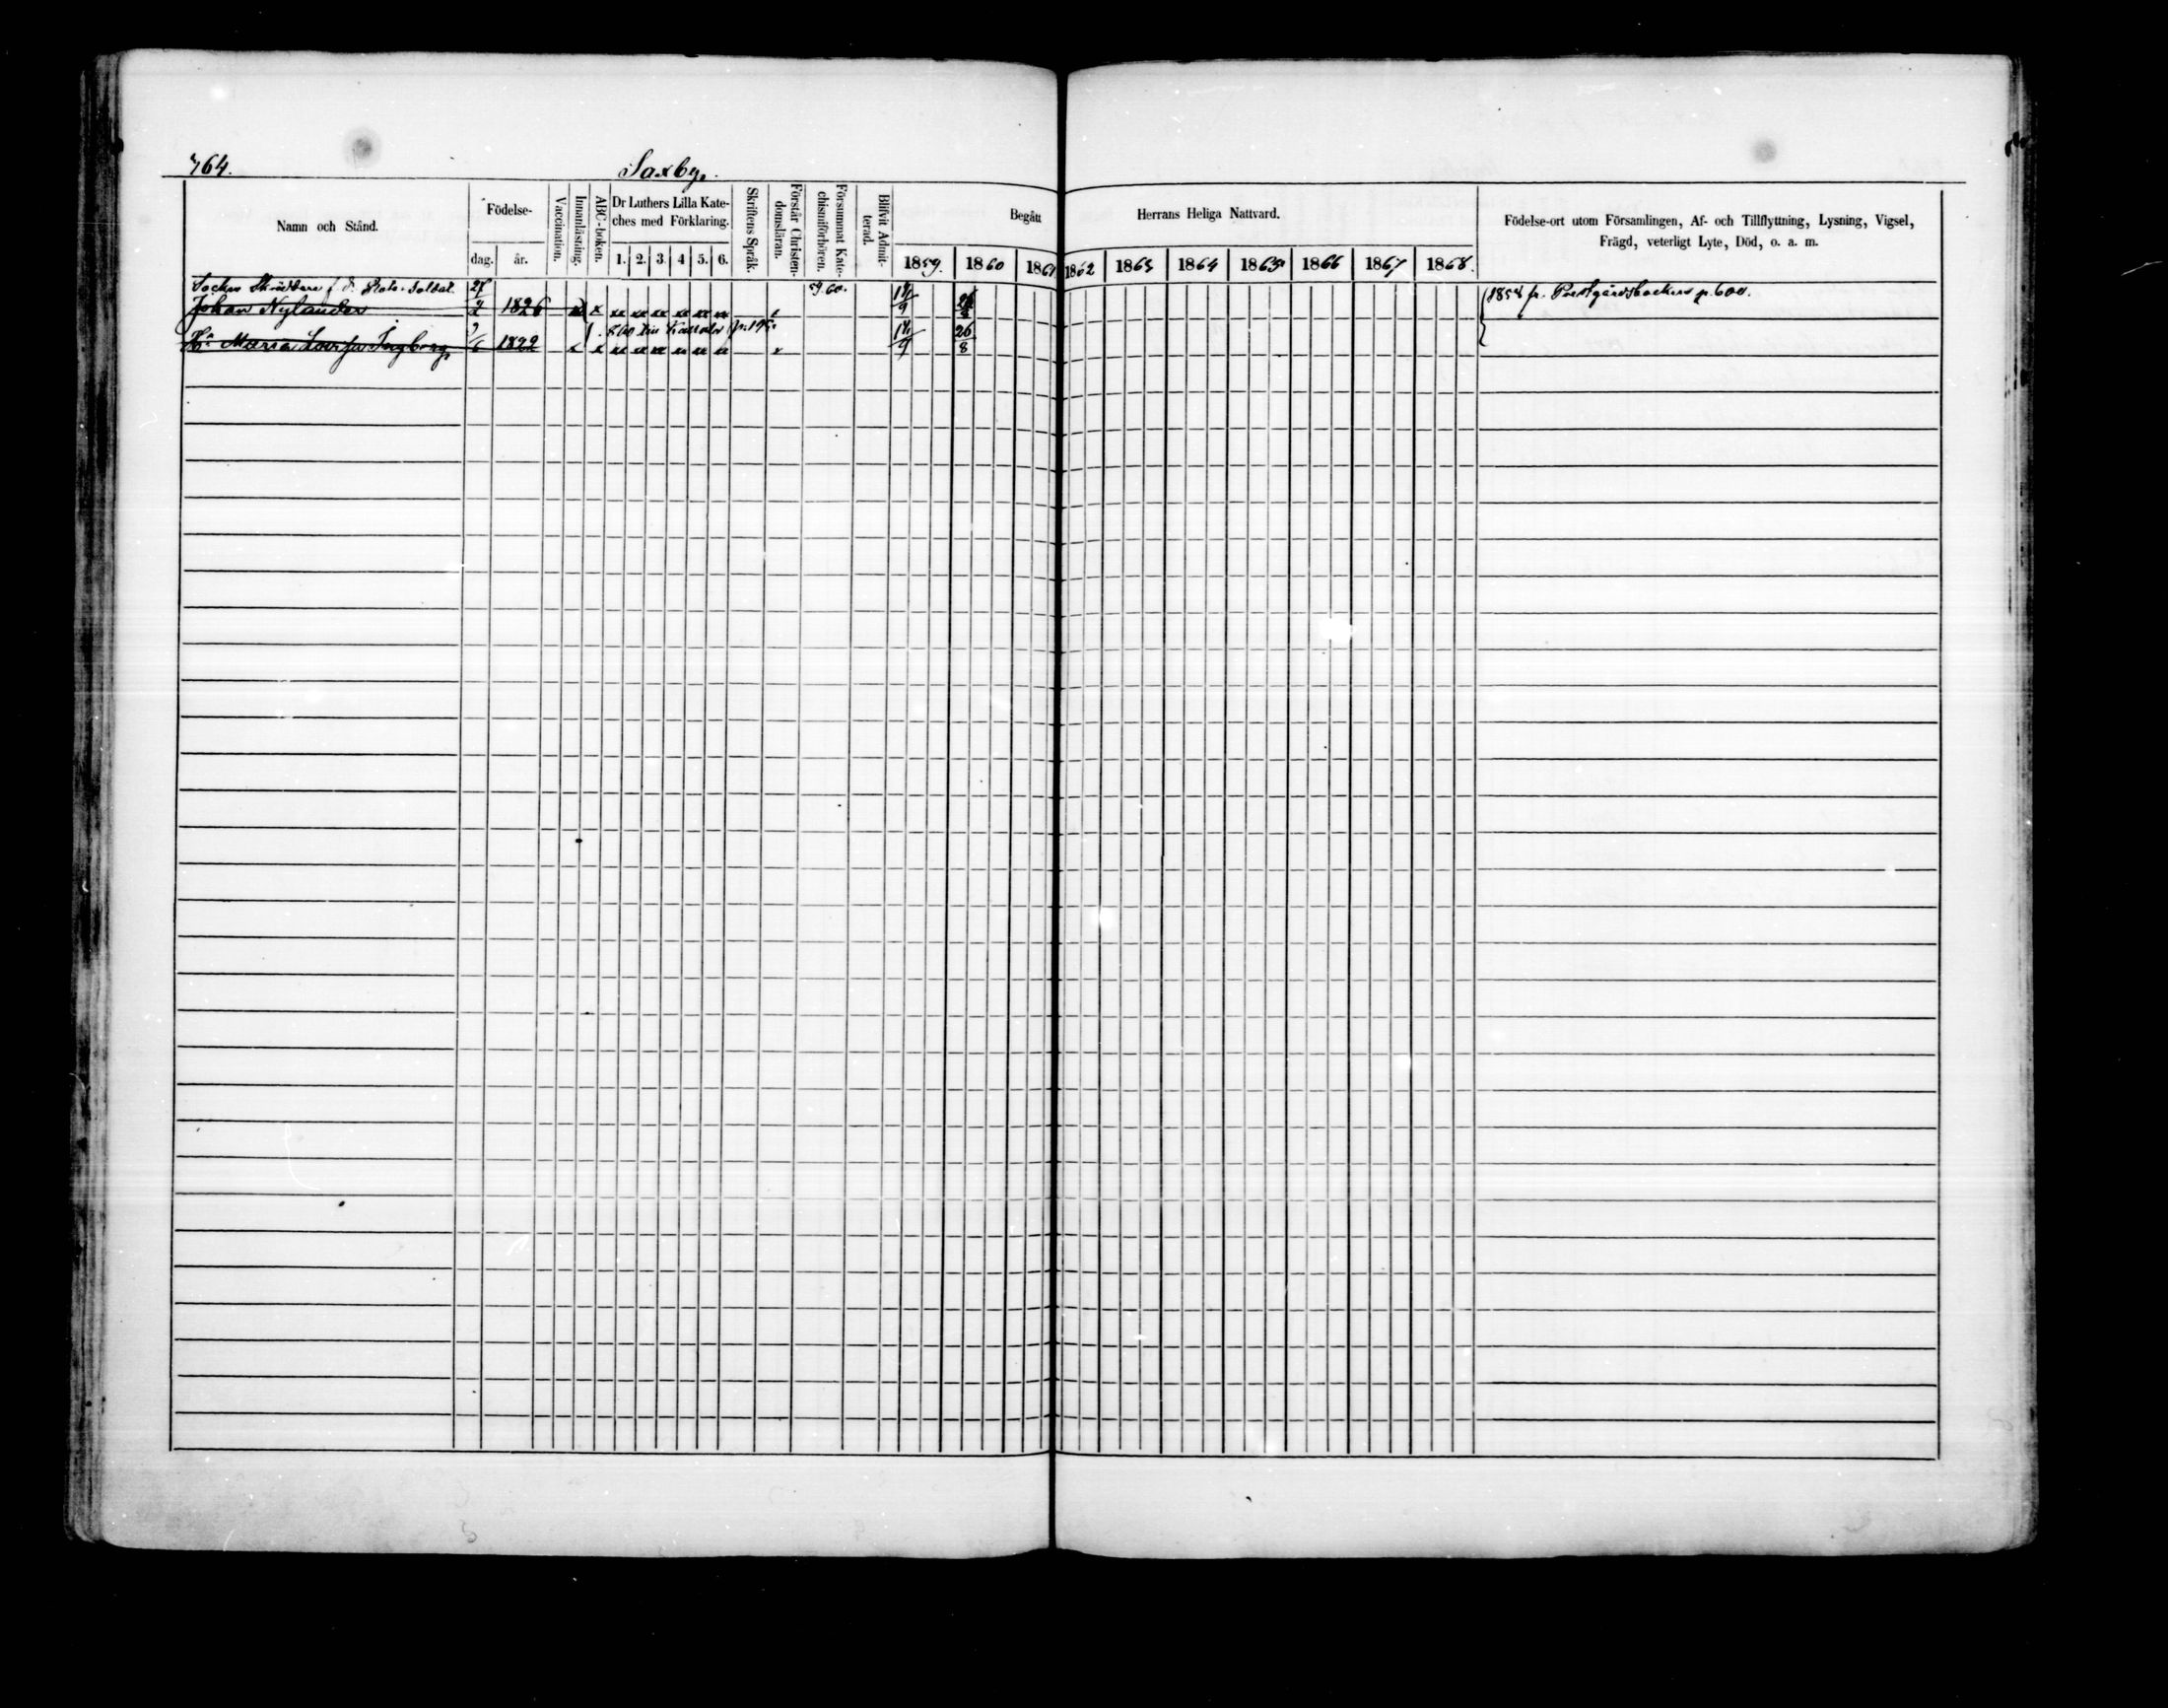 764.
Saxby.
Namn och Stånd.
Födelse-
dag.
år.
Vaccination.
Innanläsning.
ABC-boken.
Dr Luthers Lilla Kate-
ches med Förklaring.
1. 2. 3. 4 5. 6.
Skriftens Språk.
Förstår Christen-
domsläran.
Försummat Kate-
chismiförhören.
Blifvit Admit-
terad.
Begått Herrans Heliga Nattvard.
1859. 1860 1861 1862 1863 1864 1865 1866 1867 1868.
Födelse-ort utom Församlingen, Af- och Tillflyttning, Lysning, Vigsel,
Frägd, veterligt Lyte, Död, o. a. m.
Socken Skräddare f. d. Soldat
27
59. 60.
1858 fr. Prestgårdsbacken p. 600.
Johan Nylander
1826
Hu Maria Lovisa Ingberg
1822
26
8